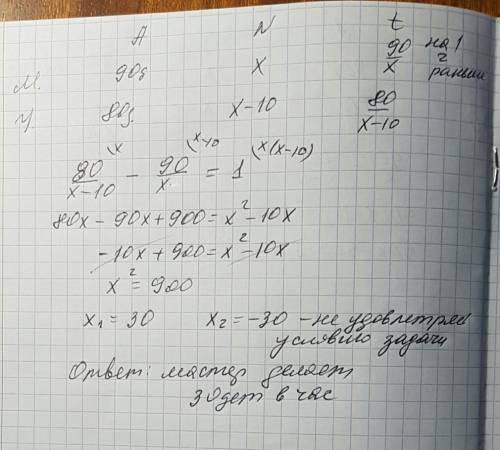 A N t
М. 90д x 90/x на 1 ч раньше
У. 80д. x-10 80/x-10
80/x-10 (x - 90/x (x-10 = 1 (x(x-10)
80x - 90x + 900 = x² - 10x
-10x + 900 = x² - 10x
x² = 900
x₁ = 30 x₂ = -30 - не удовлетряет
условию задачи
Ответ: мастер делает
30 дет в час